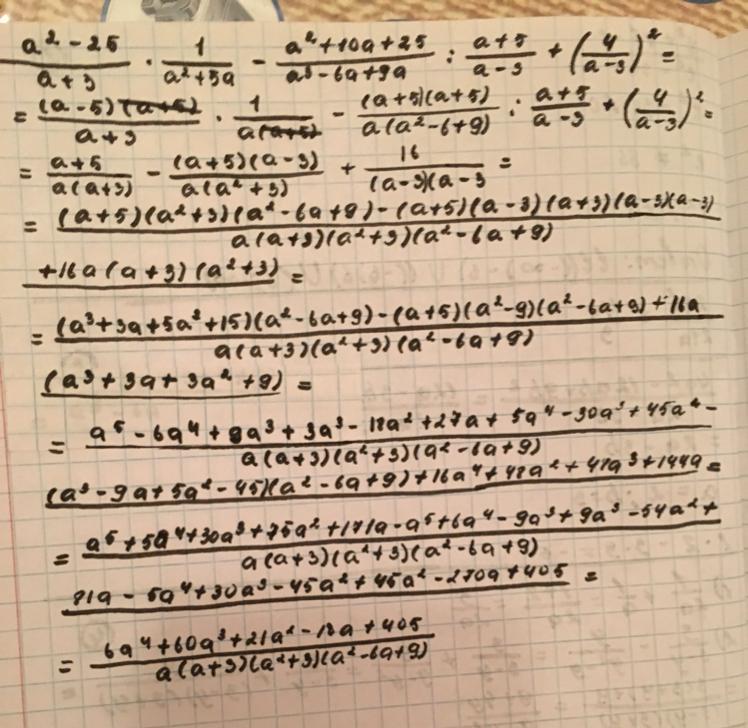 a² - 25 / a + 3 · 1 / a² + 5a - a² + 10a + 25 / a³ - 6a + 9a : a + 5 / a - 3 + (4 / a - 3)² =
= (a - 5)(a + 5) / a + 3 · 1 / a(a + 5) - (a + 5)(a + 5) / a(a² - 6 + 9) : a + 5 / a - 3 + (4 / a - 3)² =
= a + 5 / a(a + 3) - (a + 5)(a - 3) / a(a² + 3) + 16 / (a - 3)(a - 3 =
= (a + 5)(a² + 3)(a² - 6a + 9) - (a + 5)(a - 3)(a + 3)(a - 3)(a - 3) / a(a + 3)(a² + 3)(a² - 6a + 9)
+ 16a(a + 3)(a² + 3) =
= (a³ + 3a + 5a² + 15)(a² - 6a + 9) - (a + 5)(a² - 9)(a² - 6a + 9) + 16a / a(a + 3)(a² + 3)(a² - 6a + 9)
(a³ + 3a + 3a² + 9) =
= a⁵ - 6a⁴ + 9a³ + 3a³ - 18a² + 27a + 5a⁴ - 30a³ + 45a² - / a(a + 3)(a² + 3)(a² - 6a + 9)
(a³ - 9a + 5a² - 45)(a² - 6a + 9) + 16a⁴ + 48a² + 48a³ + 144a =
= a⁵ + 5a⁴ + 30a³ + 75a² + 171a - a⁵ + 6a⁴ - 9a³ + 9a³ - 54a² + / a(a + 3)(a² + 3)(a² - 6a + 9)
81a - 5a⁴ + 30a³ - 45a² + 45a² - 270a + 405 =
= 6a⁴ + 60a³ + 21a² - 18a + 405 / a(a + 3)(a² + 3)(a² - 6a + 9)